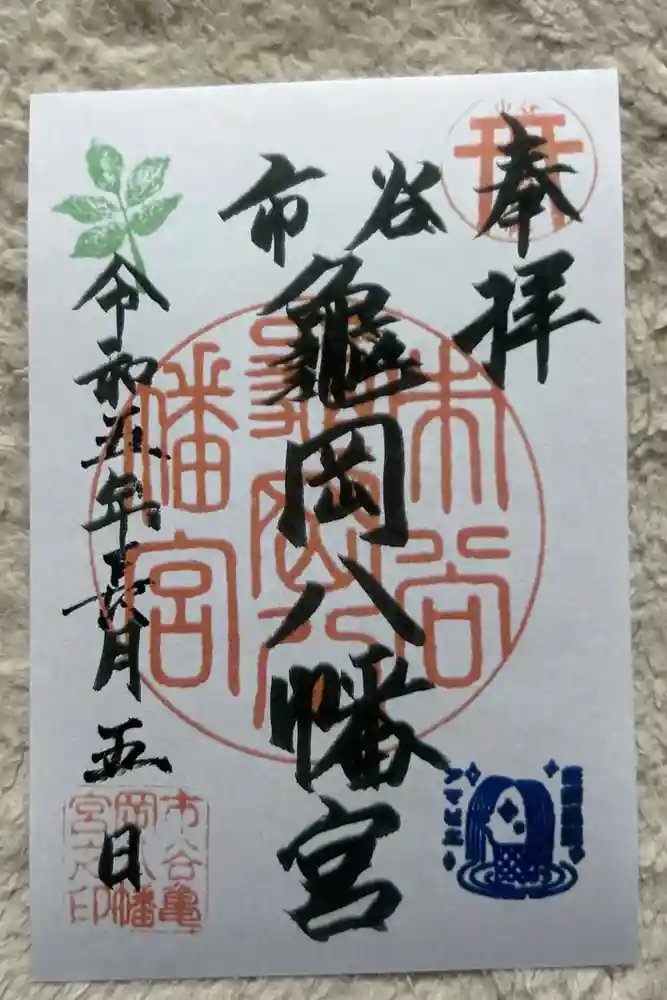 奉拝
市谷
龜岡八幡宮
令和五年長月五日
市谷
亀岡八
幡宮
市谷亀
岡八幡
宮之印